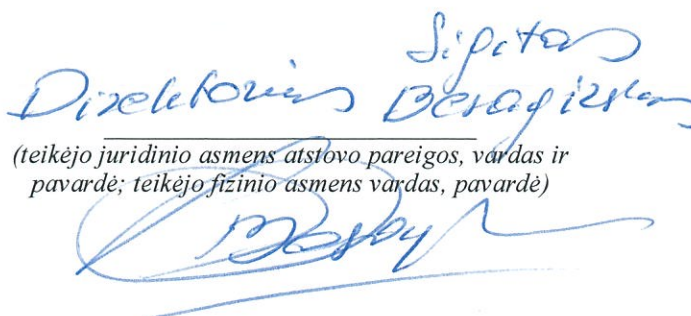 Sigitas
Direktorius
(teikėjo juridinio asmens atstovo pareigos, vardas ir
pavardė; teikėjo fizinio asmens vardas, pavardė)